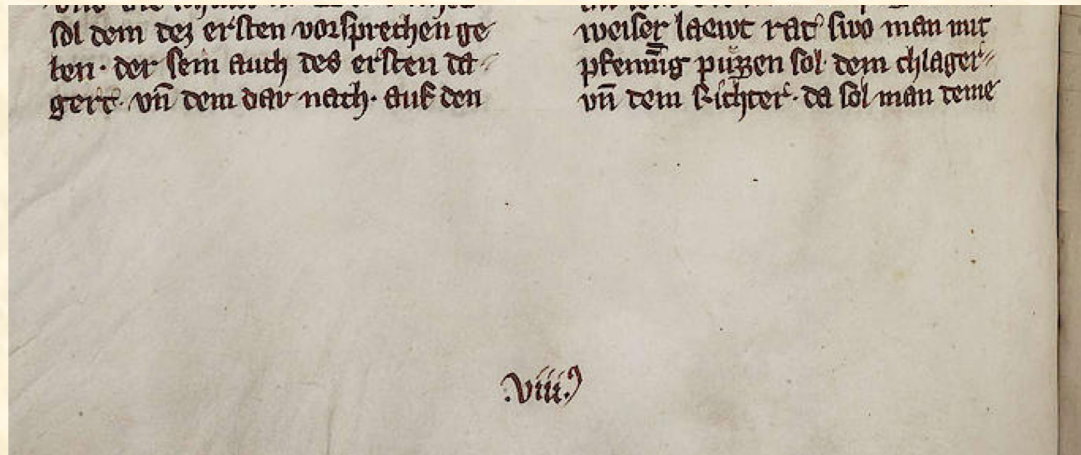 sol dem dez ersten vorsprechen ge
ben · der sein auch des ersten ta
gert · vn̄ dem dar nach · auf den
weiser laewt rat swo man mit
pfenning puzzen sol dem chlager
vn̄ dem Richter · da sol man deme
.viii.ꝯ